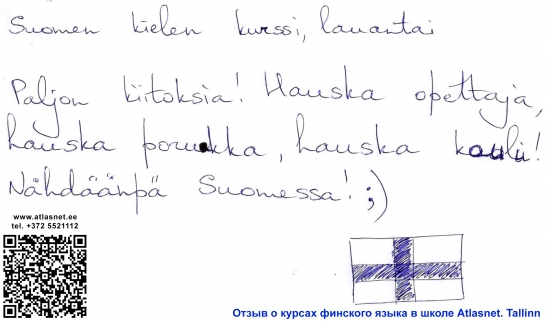 Suomen kielen kurssi, lauantai
Paljon kiitoksia! Hauska opettaja,
hauska porukka, hauska koulu!
Nähdäänpä Suomessa! ;)
www.atlasnet.ee
tel. +372 5521112
Отзыв о курсах финского языка в школе Atlasnet. Tallinn